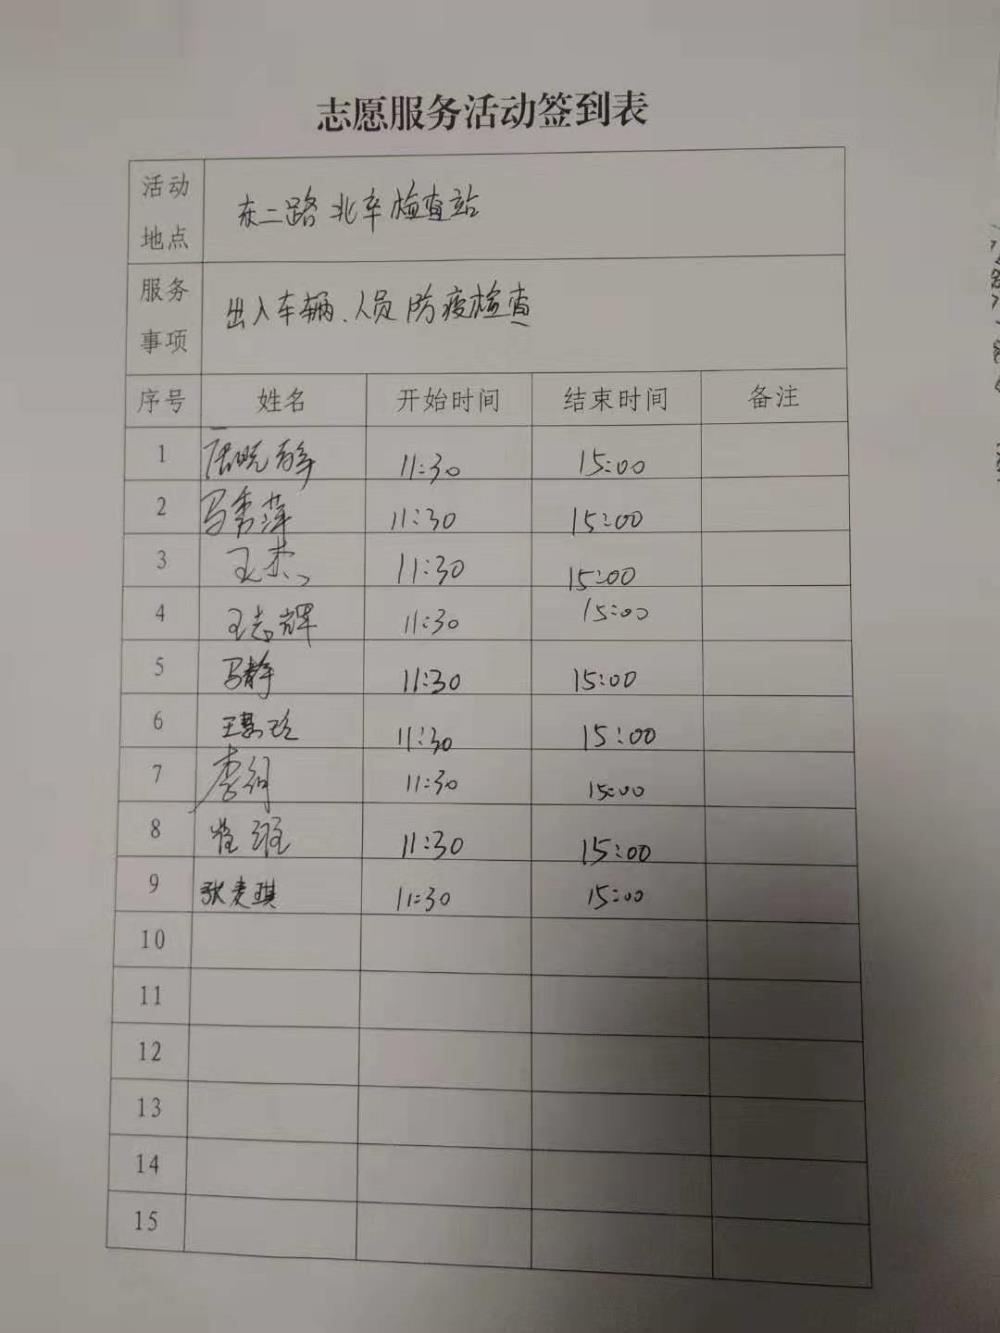 志愿服务活动签到表
活动地点 东二路北卒检查站
服务事项 出入车辆、人员防疫检查
序号 姓名 开始时间 结束时间 备注
1 11:30 15:00
2 马秀萍 11:30 15:00
3 王杰 11:30 15:00
4 王志辉 11:30 15:00
5 马静 11:30 15:00
6 11:30 15:00
7 11:30 15:00
8 11:30 15:00
9 张麦琪 11:30 15:00
10
11
12
13
14
15